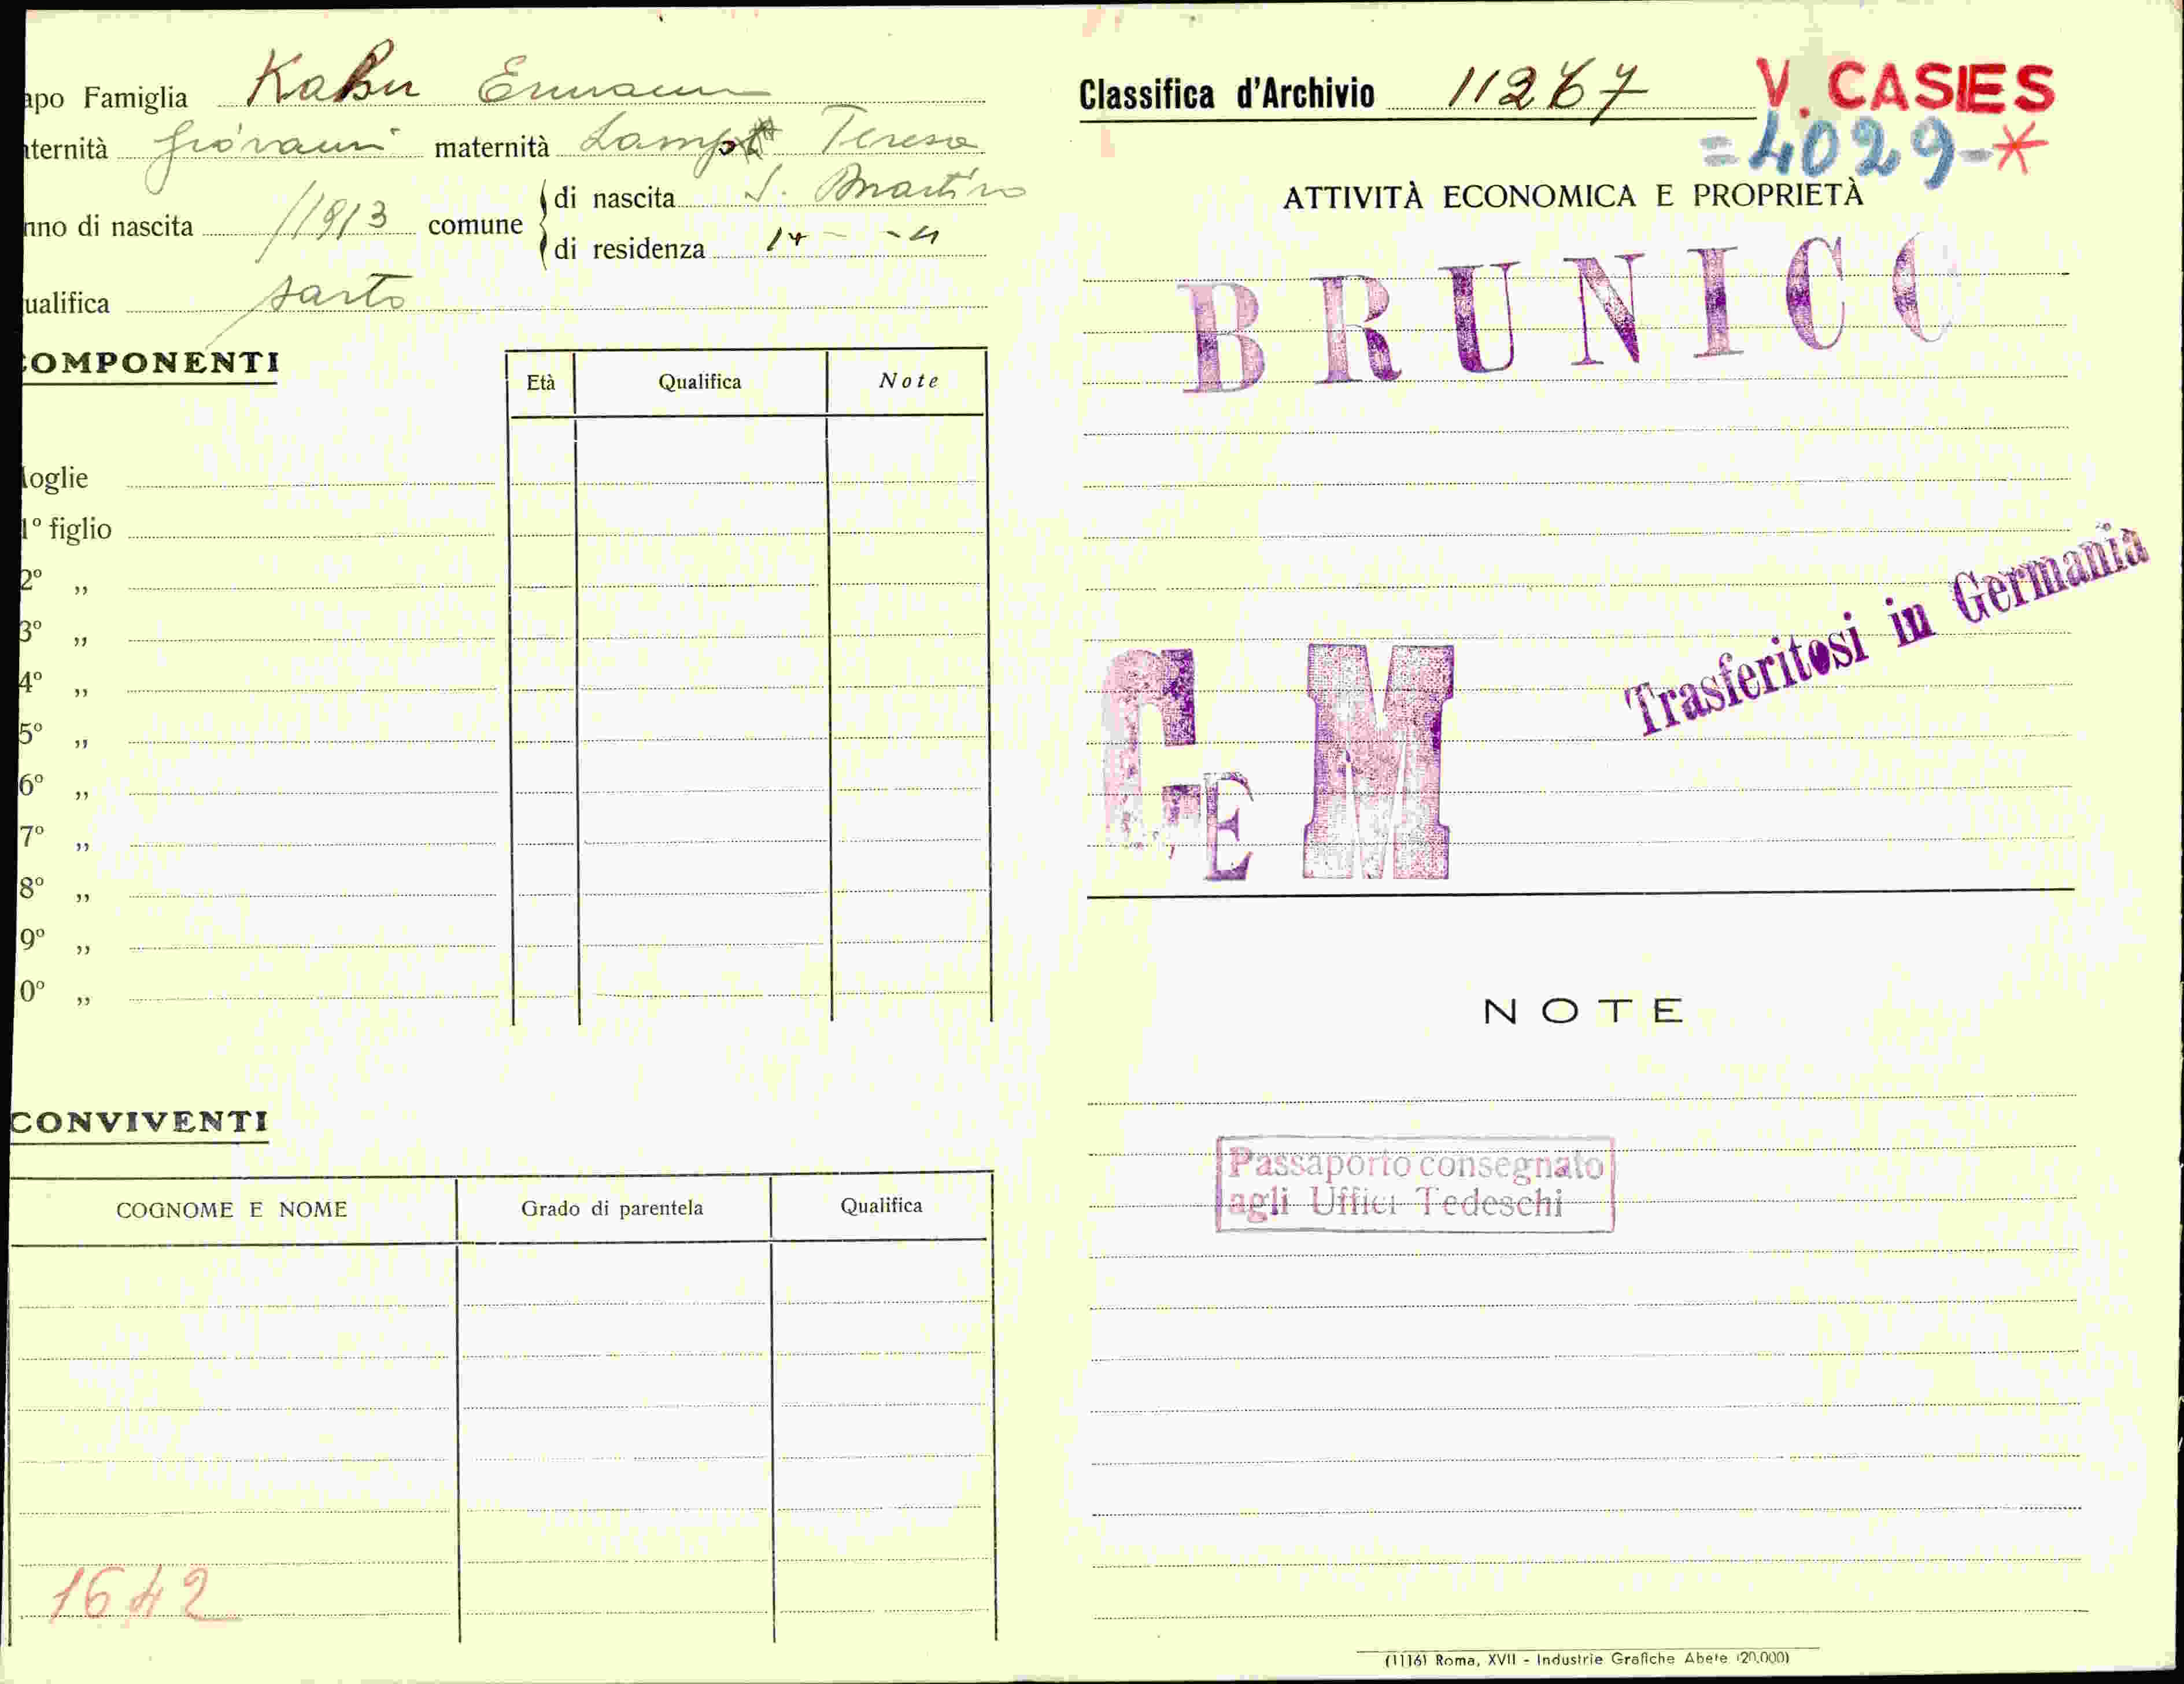 apo Famiglia Kahn Ermann
aternità Giovanni maternità Teresa
nno di nascita 1913 comune di nascita S. Martino
di residenza
ualifica sarto
COMPONENTI
Età Qualifica Note
oglie
1º figlio
2º ,,
3º ,,
4º ,,
5º ,,
6º ,,
7º ,,
8º ,,
9º ,,
0º ,,
CONVIVENTI
COGNOME E NOME Grado di parentela Qualifica
1642
Classifica d'Archivio 11267 V. CASIES
=4029-*
ATTIVITÀ ECONOMICA E PROPRIETÀ
BRUNICO
Trasferitosi in Germania
G E M
NOTE
Passaporto consegnato
agli Uffici Tedeschi
(1116) Roma, XVII - Industrie Grafiche Abete (20.000)